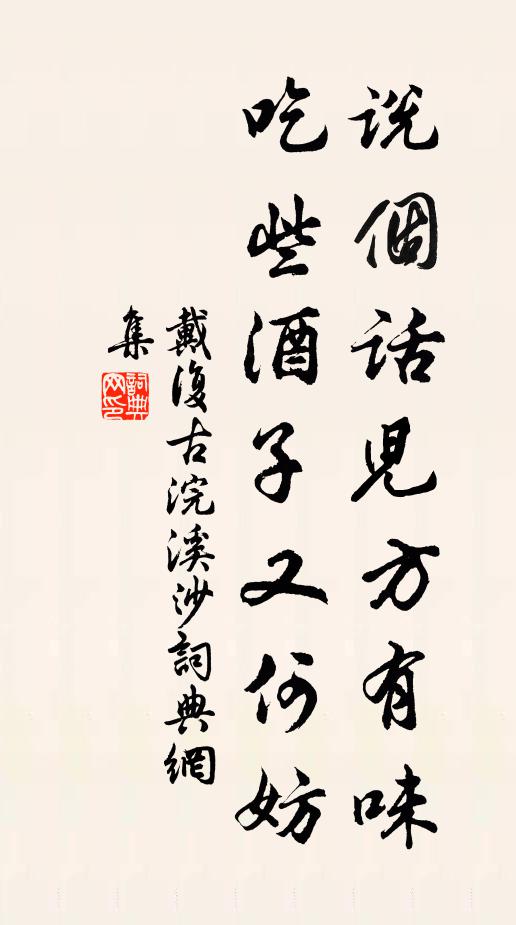 說個話兒方有味
吃些酒子又何妨
戴復古浣溪沙詞典網
集
詞典
网印